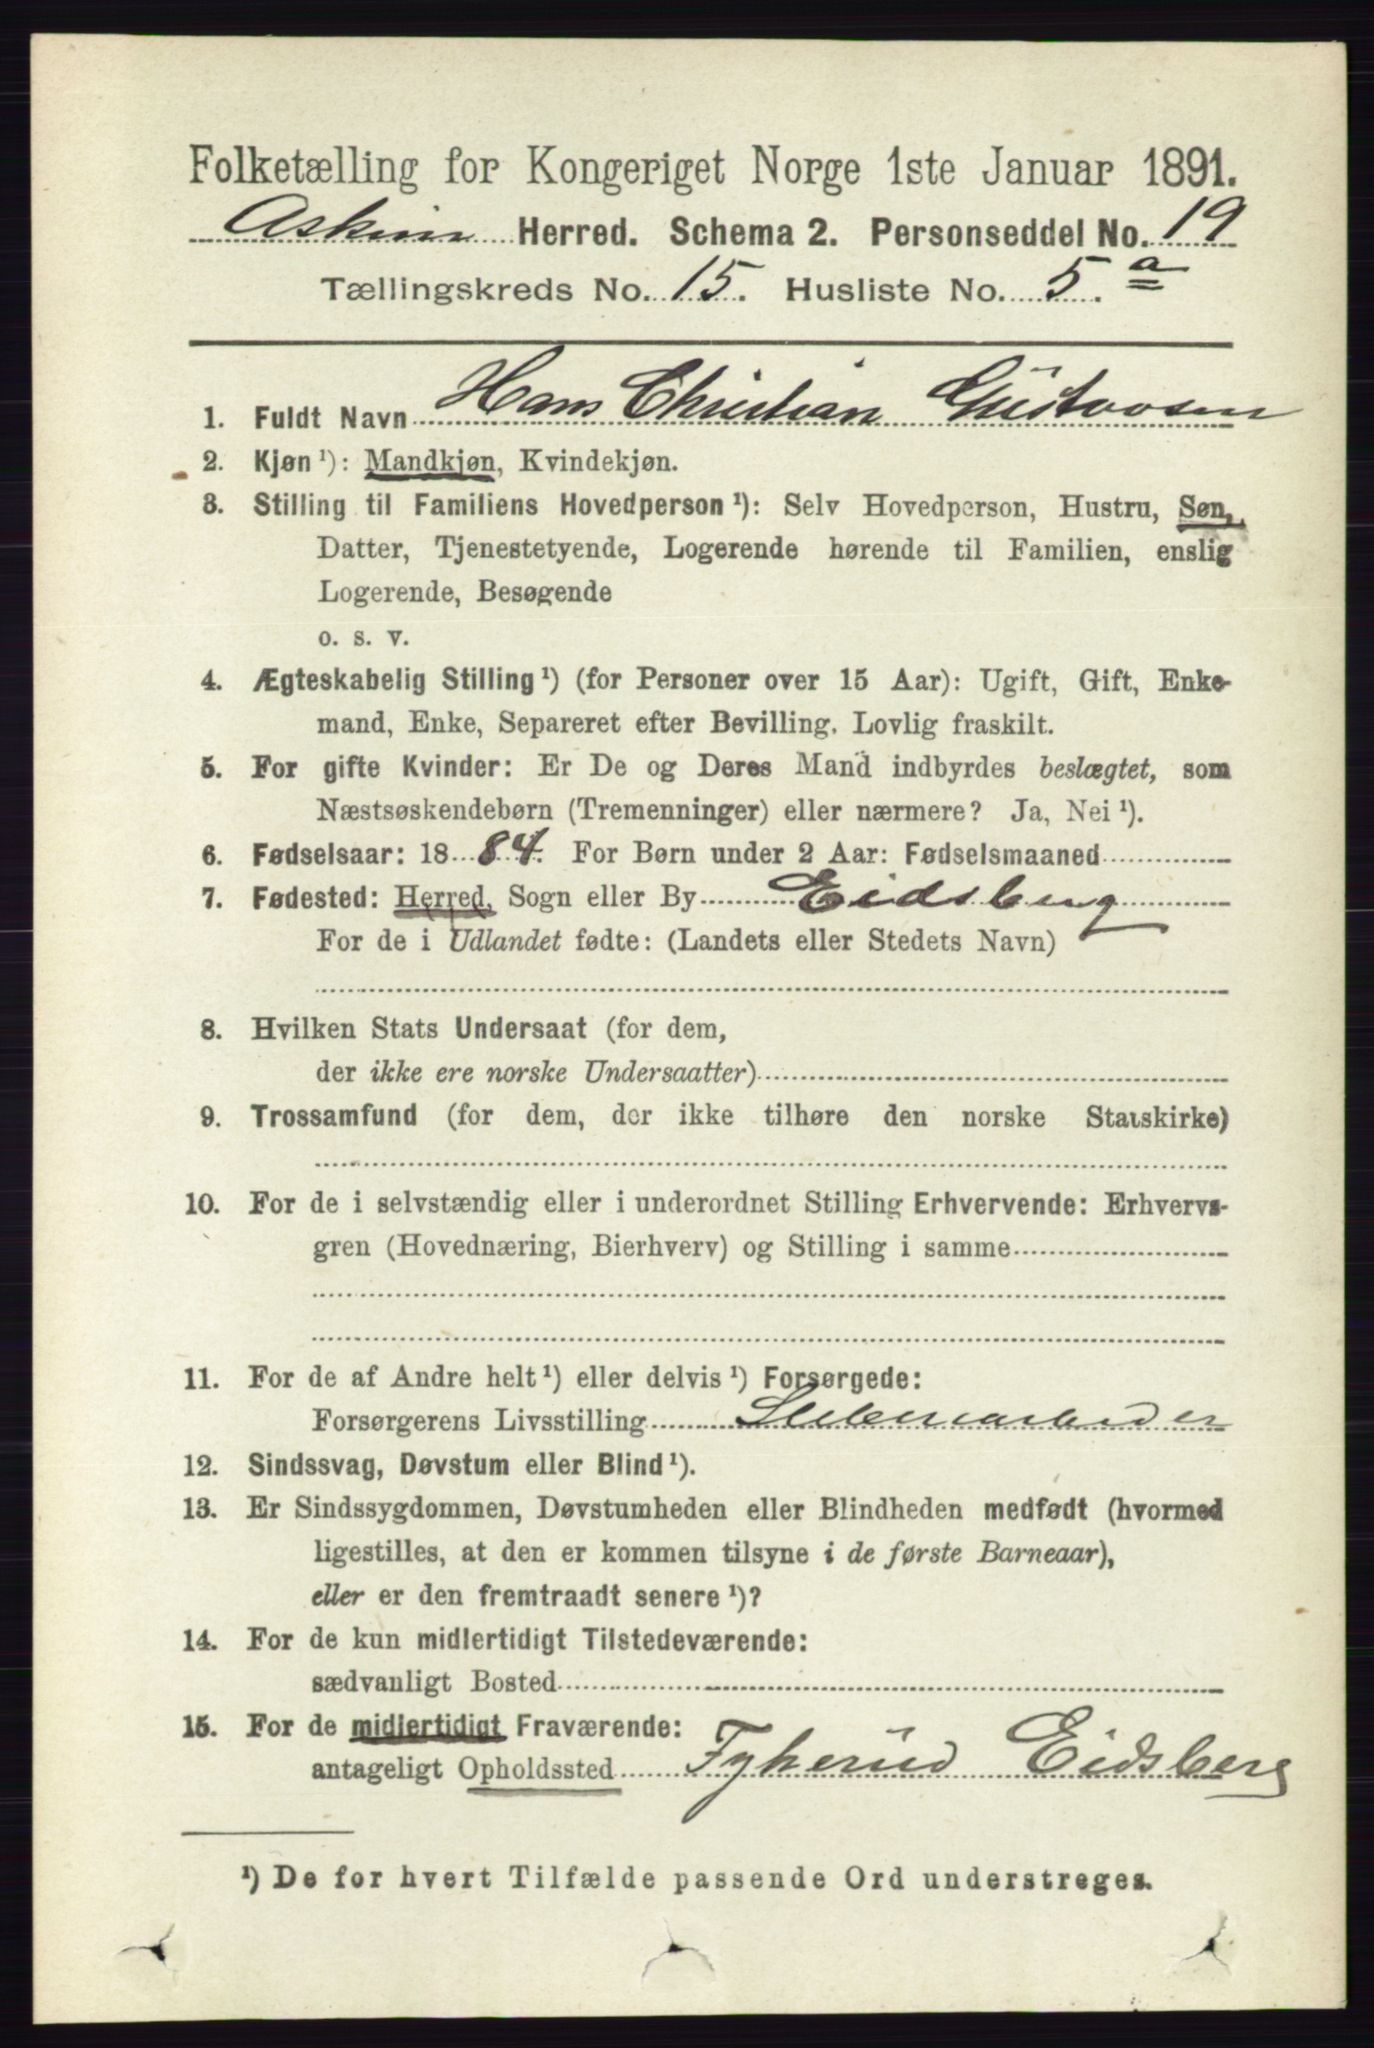 Folketælling for Kongeriget Norge 1ste Januar 1891.
Askim Herred. Schema 2. Personseddel No. 19
Tællingskreds No. 15. Husliste No. 5.a
1. Fuldt Navn Hans Christian Gustavsen
2. Kjøn¹): Mandkjøn, Kvindekjøn.
3. Stilling til Familiens Hovedperson¹): Selv Hovedperson, Hustru, Søn,
Datter, Tjenestetyende, Logerende hørende til Familien, enslig
Logerende, Besøgende
o. s. v.
4. Ægteskabelig Stilling¹) (for Personer over 15 Aar): Ugift, Gift, Enke-
mand, Enke, Separeret efter Bevilling. Lovlig fraskilt.
5. For gifte Kvinder: Er De og Deres Mand indbyrdes beslægtet, som
Næstsøskendebørn (Tremenninger) eller nærmere? Ja, Nei¹).
6. Fødselsaar: 1884. For Børn under 2 Aar: Fødselsmaaned
7. Fødested: Herred, Sogn eller By Eidsberg
For de i Udlandet fødte: (Landets eller Stedets Navn)
8. Hvilken Stats Undersaat (for dem,
der ikke ere norske Undersaatter)
9. Trossamfund (for dem, der ikke tilhøre den norske Statskirke)
10. For de i selvstændig eller i underordnet Stilling Erhvervende: Erhvervs-
gren (Hovednæring, Bierhverv) og Stilling i samme
11. For de af Andre helt¹) eller delvis¹) Forsørgede:
Forsørgerens Livsstilling
12. Sindssvag, Døvstum eller Blind¹).
13. Er Sindssygdommen, Døvstumheden eller Blindheden medfødt (hvormed
ligestilles, at den er kommen tilsyne i de første Barneaar),
eller er den fremtraadt senere¹)?
14. For de kun midlertidigt Tilstedeværende:
sædvanligt Bosted
15. For de midlertidigt Fraværende:
antageligt Opholdssted Tykerud Eidsberg
¹) De for hvert Tilfælde passende Ord understreges.